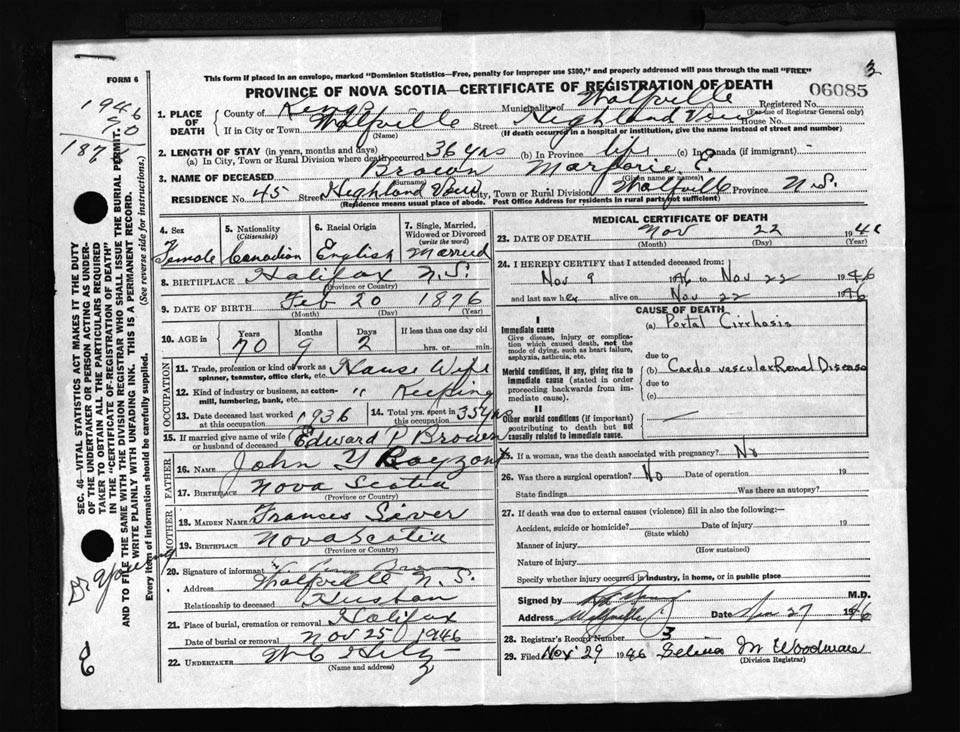 3
FORM 6
This form if placed in an envelope, marked "Dominion Statistics—Free, penalty for improper use $300," and properly addressed will pass through the mail "FREE"
PROVINCE OF NOVA SCOTIA—CERTIFICATE OF REGISTRATION OF DEATH
06085
1946
70
1875
1. PLACE OF DEATH
County of Kings Municipality of Wolfville Registered No.
(For use of Registrar General only)
If in City or Town Wolfville Street Highland View House No.
(Name) (If death occurred in a hospital or institution, give the name instead of street and number)
2. LENGTH OF STAY (in years, months and days)
(a) In City, Town or Rural Division where death occurred 36 yrs (b) In Province life (c) In Canada (if immigrant) -
3. NAME OF DECEASED Brown Marjorie E.
(Surname) (Given name or names)
RESIDENCE No. 45 Street Highland View City, Town or Rural Division Wolfville Province N.S.
(Residence means usual place of abode. Post Office Address for residents in rural parts not sufficient)
4. Sex Female
5. Nationality (Citizenship) Canadian
6. Racial Origin English
7. Single, Married, Widowed or Divorced (write the word) Married
8. BIRTHPLACE Halifax N.S.
(Province or Country)
9. DATE OF BIRTH Feb 20 1876
(Month) (Day) (Year)
10. AGE in Years Months Days If less than one day old
70 9 2 hrs. or min.
OCCUPATION
11. Trade, profession or kind of work as spinner, teamster, office clerk, etc. House Wife
12. Kind of industry or business, as cotton-mill, lumbering, bank, etc. " Keeping
13. Date deceased last worked at this occupation 1936
14. Total yrs. spent in this occupation 35 yrs
15. If married give name of wife or husband of deceased Edward P Brown
FATHER
16. NAME John Y
17. BIRTHPLACE Nova Scotia
(Province or Country)
MOTHER
18. MAIDEN NAME Frances
19. BIRTHPLACE Nova Scotia
(Province or Country)
20. Signature of informant
Address Wolfville N.S.
Relationship to deceased Husban
21. Place of burial, cremation or removal Halifax
Date of burial or removal Nov 25 1946
22. UNDERTAKER
(Name and address)
MEDICAL CERTIFICATE OF DEATH
23. DATE OF DEATH Nov 22 1946
(Month) (Day) (Year)
24. I HEREBY CERTIFY that I attended deceased from:
Nov 9 1946 to Nov 22 1946
and last saw her alive on Nov 22 1946
CAUSE OF DEATH
I
Immediate cause
Give disease, injury or complication which caused death, not the mode of dying, such as heart failure, asphyxia, asthenia, etc.
(a) Portal Cirrhosis
due to
Morbid conditions, if any, giving rise to immediate cause (stated in order proceeding backwards from immediate cause).
(b) Cardio vascular Renal Disease
due to
(c)
II
Other morbid conditions (if important) contributing to death but not causally related to immediate cause.
25. If a woman, was the death associated with pregnancy? No
26. Was there a surgical operation? No Date of operation 19
State findings Was there an autopsy?
27. If death was due to external causes (violence) fill in also the following:—
Accident, suicide or homicide? Date of injury 19
(State which)
Manner of injury
(How sustained)
Nature of injury
Specify whether injury occurred in industry, in home, or in public place
Signed by M.D.
Address Wolfville Date Nov 27 1946
28. Registrar's Record Number 3
29. Filed Nov 29 1946 Selina M Woodman
(Division Registrar)
SEC. 46—VITAL STATISTICS ACT MAKES IT THE DUTY
OF THE UNDERTAKER OR PERSON ACTING AS UNDER-
TAKER TO OBTAIN ALL THE PARTICULARS REQUIRED
IN THE "CERTIFICATE OF REGISTRATION OF DEATH"
AND TO FILE THE SAME WITH THE DIVISION REGISTRAR WHO SHALL ISSUE THE BURIAL PERMIT.
WRITE PLAINLY WITH UNFADING INK. THIS IS A PERMANENT RECORD.
Every item of information should be carefully supplied. (See reverse side for instructions.)
Dr Young